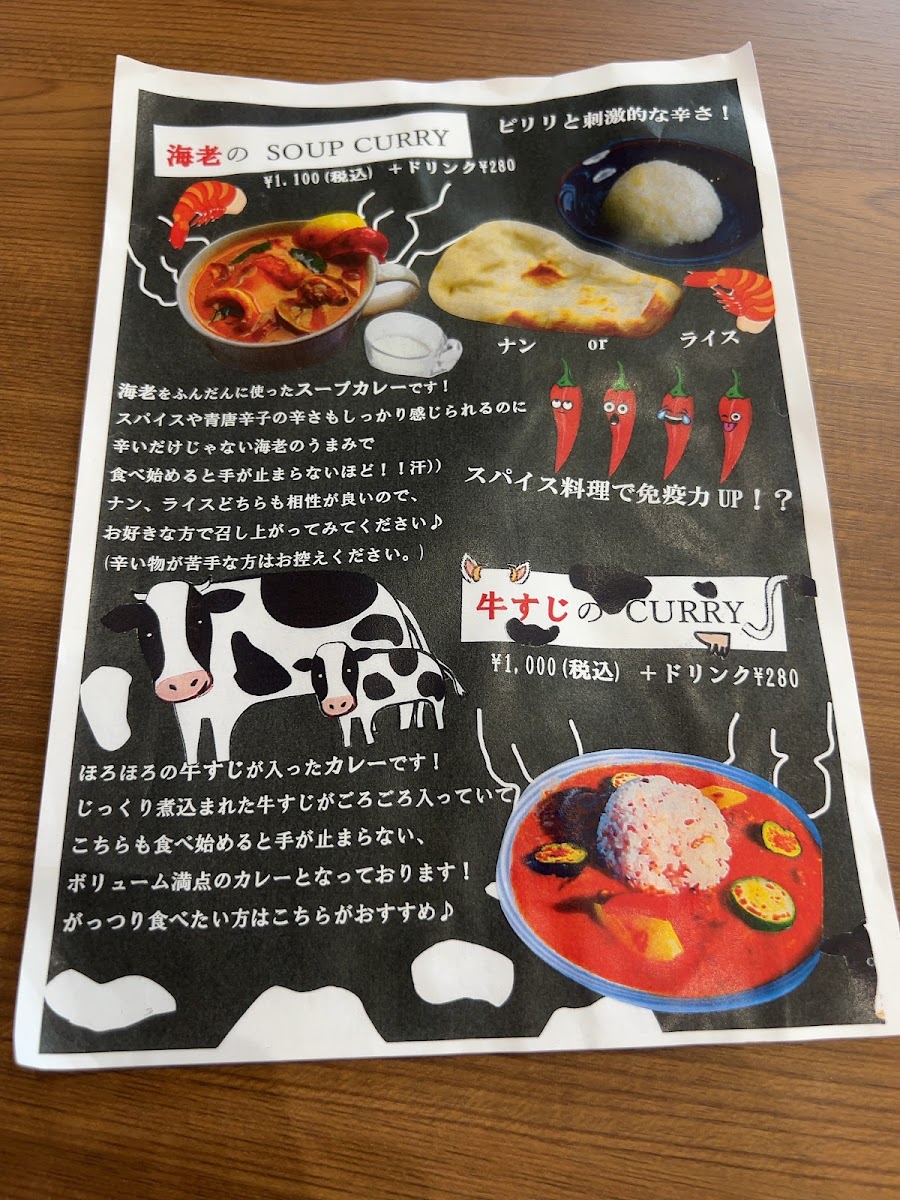 ピリリと刺激的な辛さ！
海老の SOUP CURRY
¥1,100(税込) ＋ドリンク¥280
ナン or ライス
海老をふんだんに使ったスープカレーです！
スパイスや青唐辛子の辛さもしっかり感じられるのに
辛いだけじゃない海老のうまみで
食べ始めると手が止まらないほど！！汗))
ナン、ライスどちらも相性が良いので、
お好きな方で召し上がってみてください♪
(辛い物が苦手な方はお控えください。)
スパイス料理で免疫力UP！？
牛すじの CURRY
¥1,000(税込) ＋ドリンク¥280
ほろほろの牛すじが入ったカレーです！
じっくり煮込まれた牛すじがごろごろ入っていて
こちらも食べ始めると手が止まらない、
ボリューム満点のカレーとなっております！
がっつり食べたい方はこちらがおすすめ♪